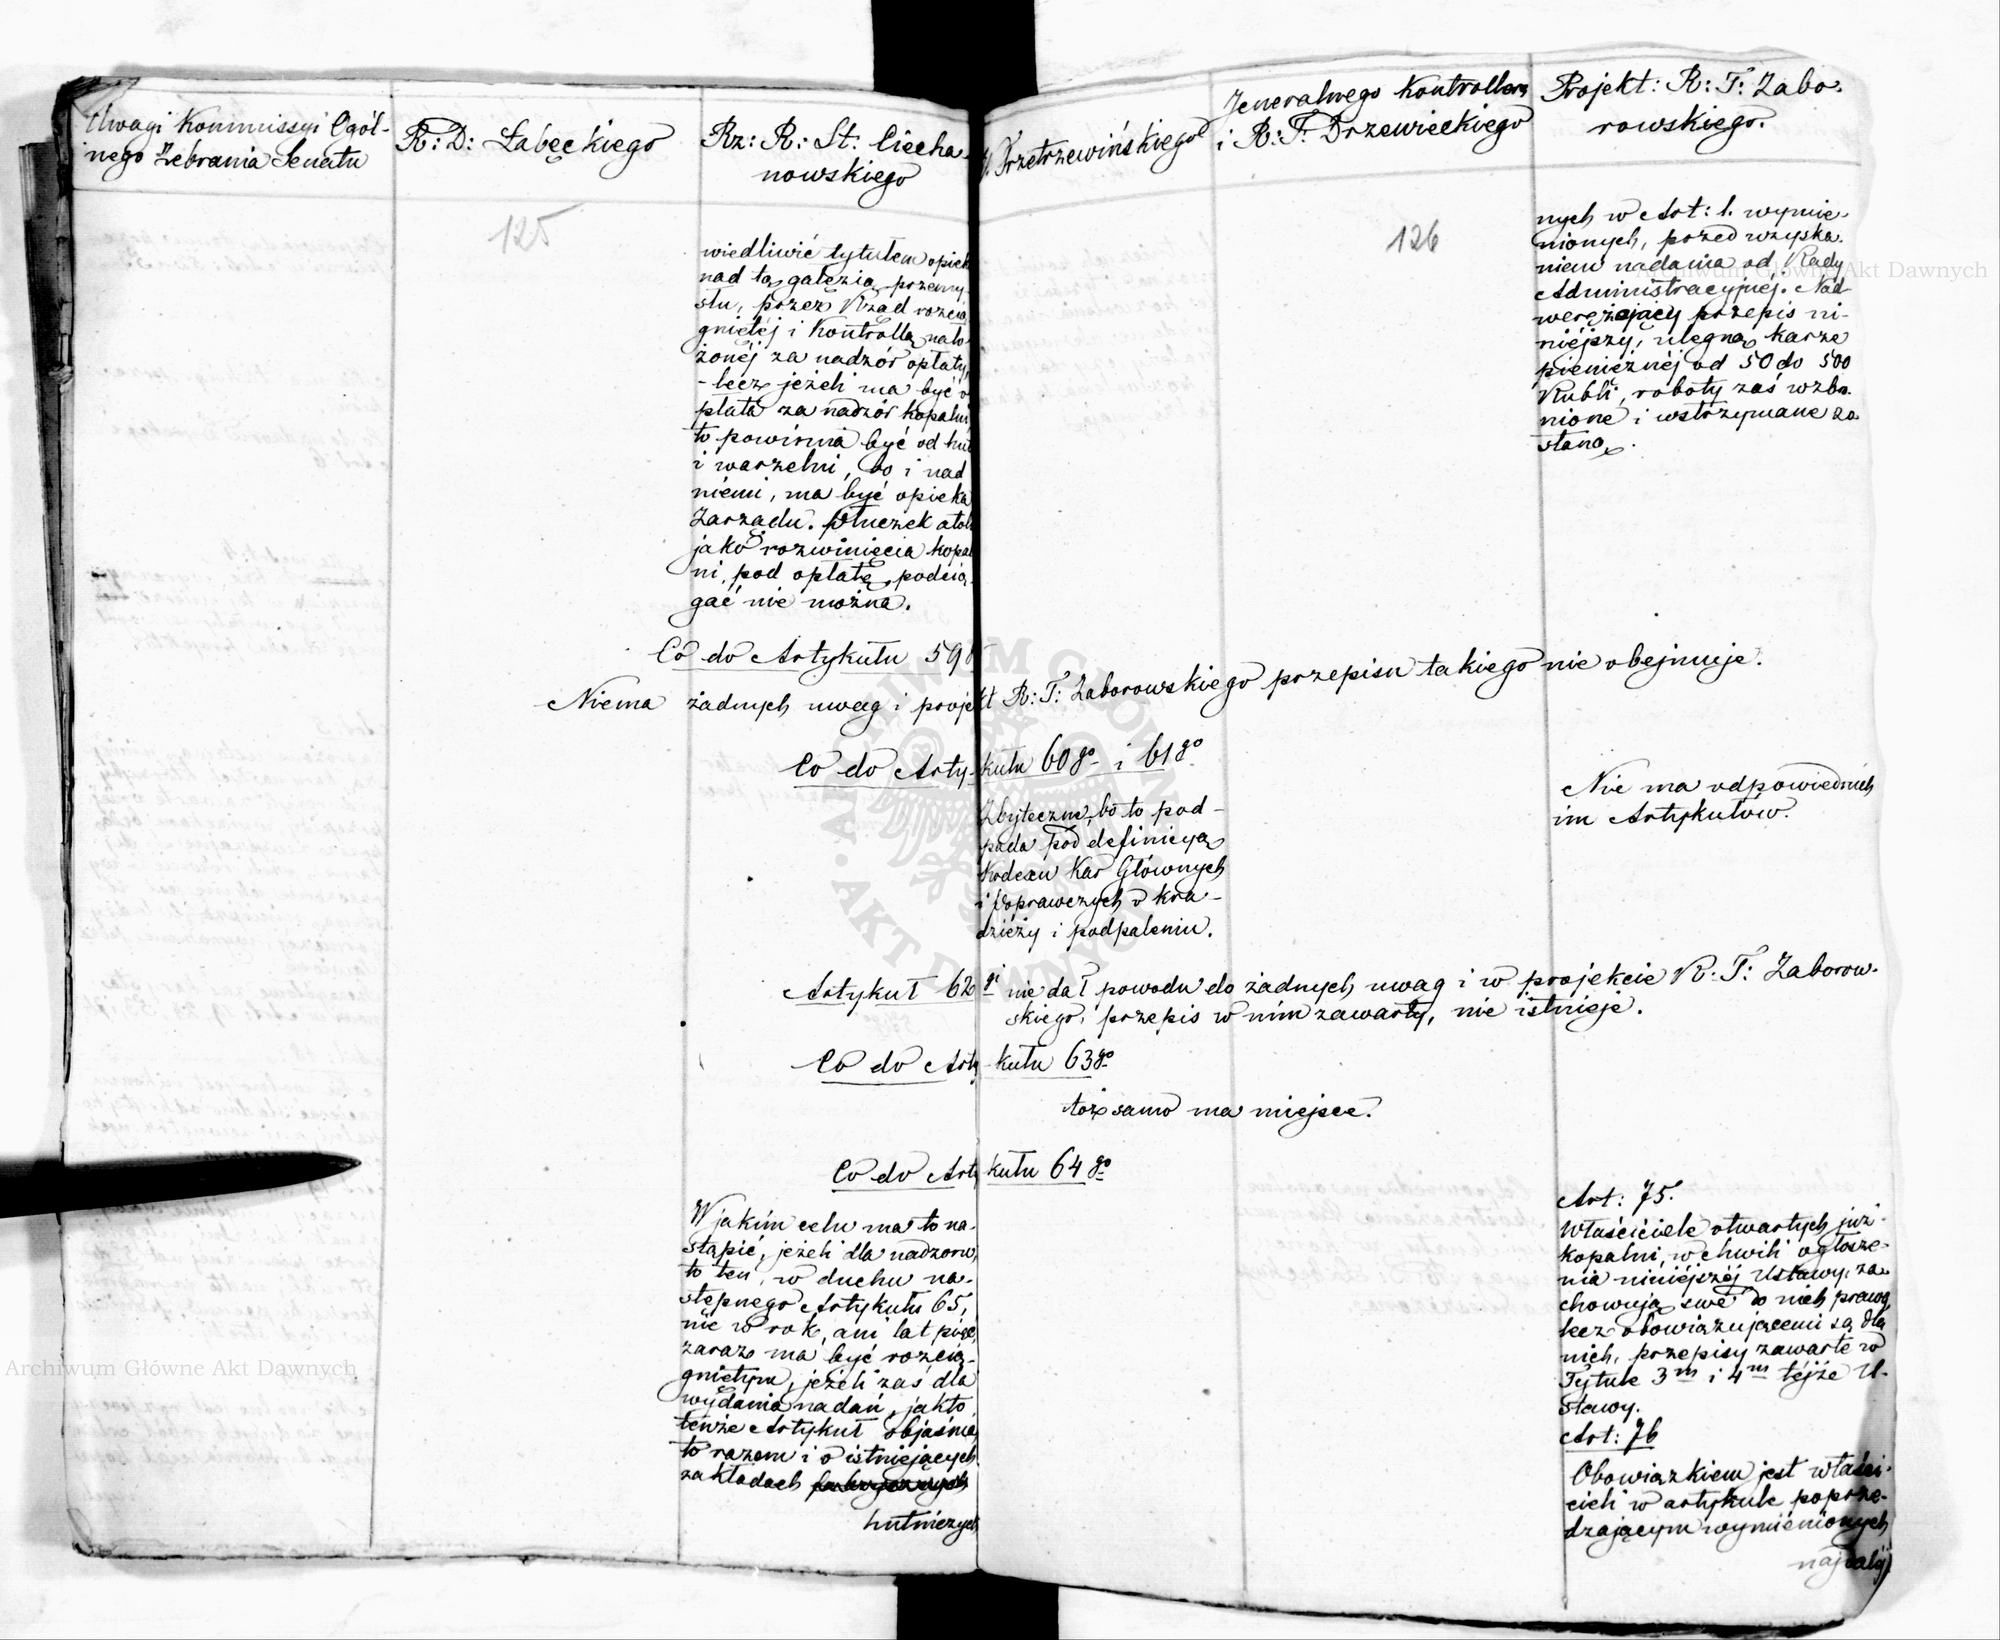 Uwagi Kommissyi Ogól-
nego Zebrania Senatu
R: D: Łabęckiego
Rz: R: St: Ciecha-
nowskiego
125
wiedliwić tytułem opiek
nad tą gałęzią przemy-
słu, przez Rząd rozcią-
gniętéj i Kontrollą nało-
żonéj za nadzór opłaty,
- lecz jeżeli ma być o
płata za nadzór kopalni
to powinna być od hut
i warzelni, bo i nad
niemi, ma być opieka
Zarządu. Płuczek atoli
jako rozwinięcia kopal
ni, pod opłatę podcią-
gać nie można.
Przetrzewińskiego
Jeneralnego Kontrollera
i R: T: Drzewieckiego
Projekt: R: T: Zabo-
rowskiego.
126
nych w Art: 1. wymie-
nionych, przed wzyska-
niem nadania od Rady
Administracyjnéj. Nad-
weręzający przepis ni-
niéjszy, ulegną karze
pieniężnéj od 50 do 500
Rubli, roboty zaś wzbo-
nione i wstrzymane zo
staną.
Co do Artykułu 59
Niema żadnych uwag i projekt R: T: Zaborowskiego przepisu takiego nie obejmuje.
Co do Arty-kułu 60go i 61go
Zbyteczne, bo to pod-
pada pod definicyą
Kodexu Kar Głównych
i Poprawczych o kra-
dzieży i podpaleniu.
Nie ma odpowiednich
im Artykułów.
Artykuł 62gi nie dał powodu do żadnych uwag i w projekcie R: T: Zaborow-
skiego, przepis w nim zawarty, nie istnieje.
Co do Arty-kułu 63go
toż samo ma miejsce.
Co do Arty-kułu 64go
W jakim celu ma to na-
stąpić, jeżeli dla nadzoru,
to ten, w duchu na-
stępnego Artykułu 65,
nie w rok, ani lat pięć,
zaraz ma być rozcią-
gniętym, jeżeli zaś dla
wydania nadań, jak to
tenże Artykuł objaśnia,
to razem i o istniejących
zakładach fabrycznych
hutniczych
Art: 75.
Właściciele otwartych już
kopalni, w chwili ogłosze-
nia niniéjszéj Ustawy, za-
chowują swe do nich prawa,
lecz obowiązującemi są dla
nich, przepisy zawarte w
Tytule 3m i 4m téjże U-
stawy.
Art: 76
Obowiązkiem jest właści-
cieli w artykule poprze-
dzającym wymienionych
najdaléj
Archiwum Główne Akt Dawnych
Archiwum Główne Akt Dawnych
ARCHIWUM GŁÓWNE · AKT DAWNYCH ·